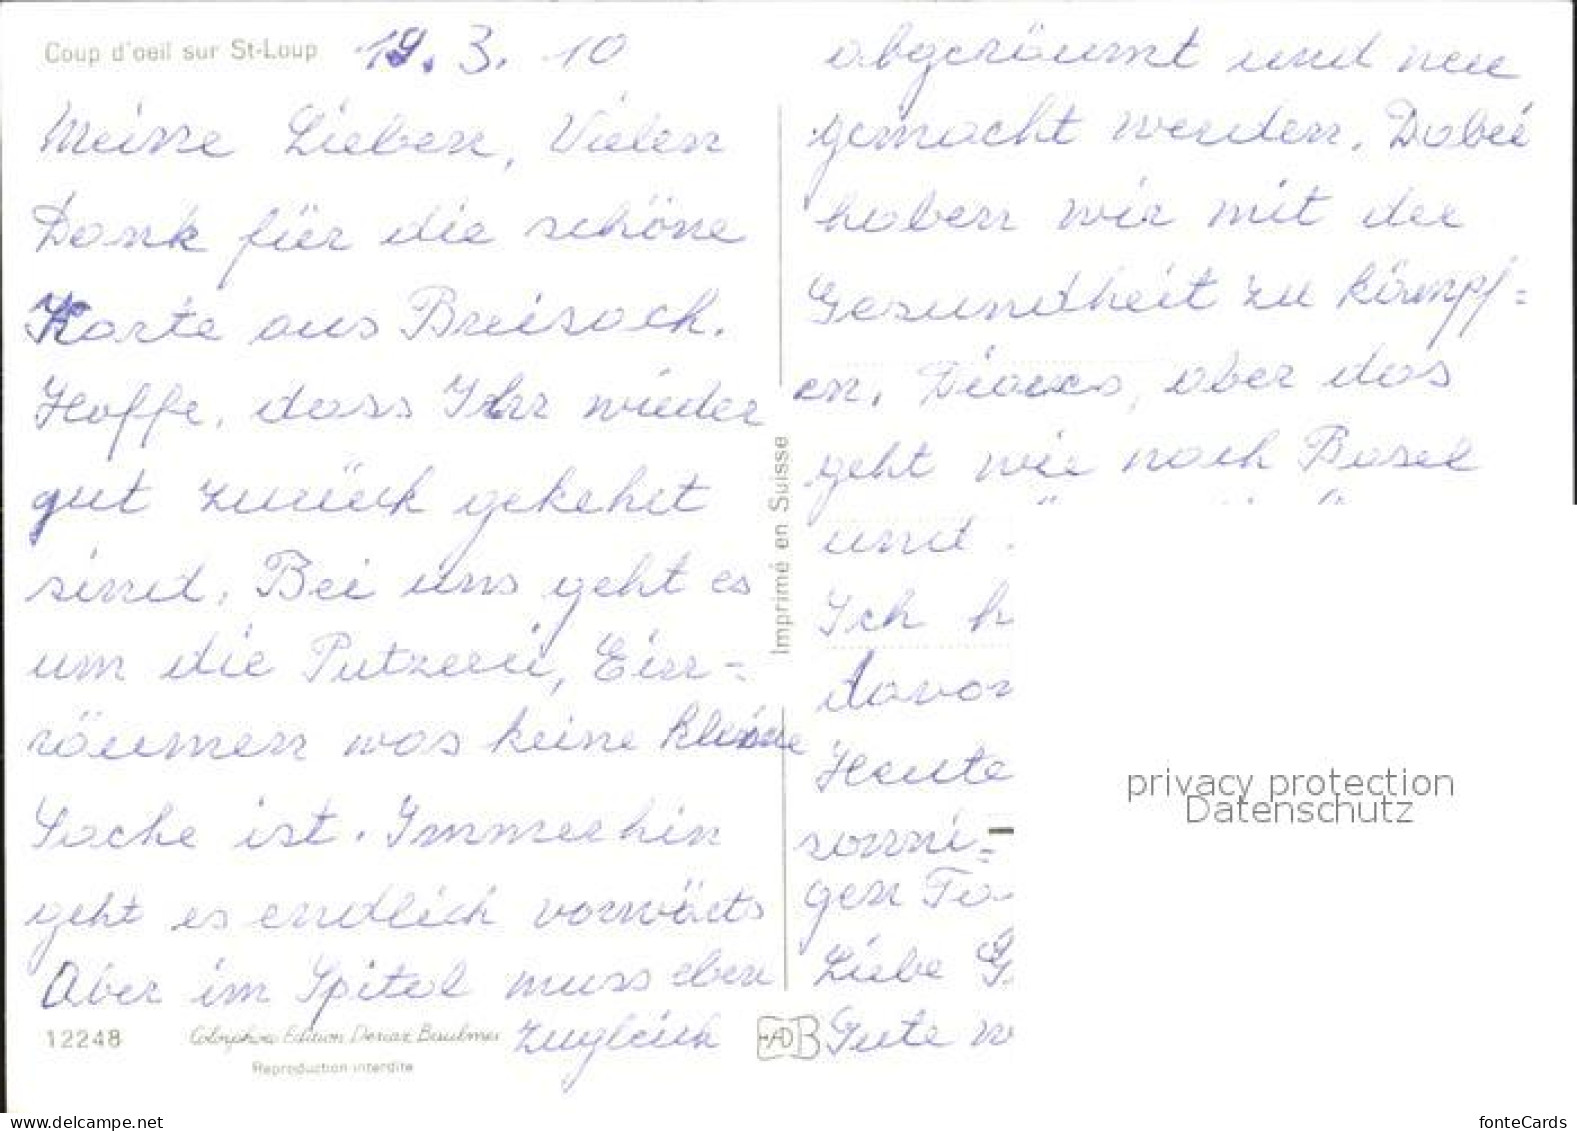 Coup d'oeil sur St-Loup 19. 3. 10
Meine Lieben, Vielen
Dank für die schöne
Karte aus Breisach.
Hoffe, dass Ihr wieder
gut zurück gekehrt
sind. Bei uns geht es
um die Putzerei, Ein=
räumen was keine kleine
Sache ist. Immerhin
geht es endlich vorwärts
Aber im Spital muss eben
zugleich
12248 Colorphoto Edition Deriaz Baulmes
Reproduction interdite
Imprimé en Suisse
abgeräumt und neu
gemacht werden. Dabei
haben wir mit der
Gesundheit zu kämpf=
en. Diacas, aber das
geht wie nach Basel
und
Ich h
davon
Heute
sonni=
gen Ta
Liebe G
Gute w
privacy protection
Datenschutz
my-postcard.com
fonteCards